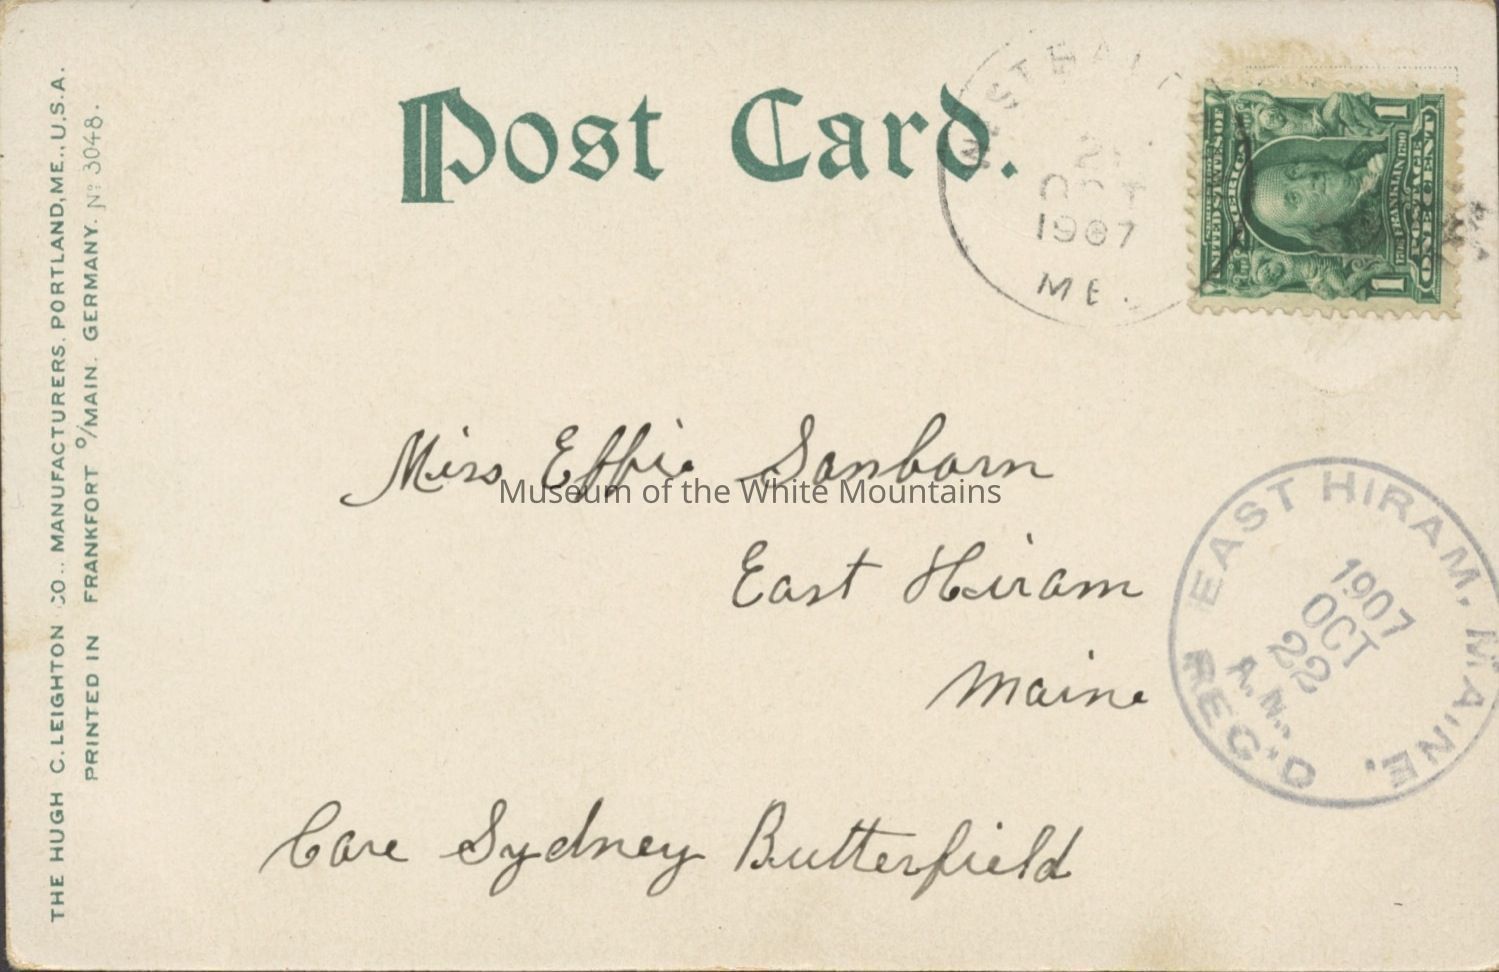 Post Card.
WEST BALDWIN
21
OCT
1907
ME.
1
UNITED STATES OF AMERICA
1706 FRANKLIN 1790
POSTAGE
ONE CENT
1
THE HUGH C. LEIGHTON CO., MANUFACTURERS, PORTLAND, ME., U.S.A.
PRINTED IN FRANKFORT o/MAIN. GERMANY. No 3048.
Miss Effie Sanborn
Museum of the White Mountains
East Hiram
Maine
Care Sydney Butterfield
EAST HIRAM, MAINE.
1907
OCT
22
REC'D